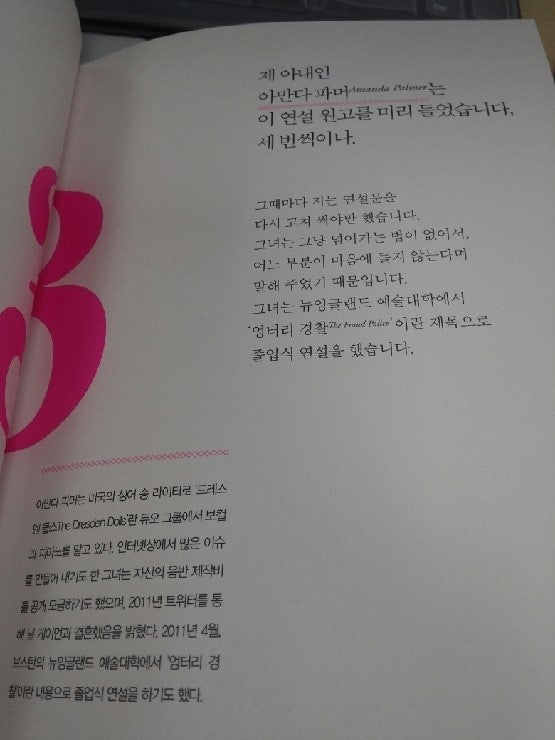 제 아내인
아만다 파머Amanda Palmer는
이 연설 원고를 미리 들었습니다,
세 번씩이나.
그때마다 저는 연설문을
다시 고쳐 써야만 했습니다.
그녀는 그냥 넘어가는 법이 없어서,
어느 부분이 마음에 들지 않는다며
말해 주었기 때문입니다.
그녀는 뉴잉글랜드 예술대학에서
‘엉터리 경찰The Fraud Police’이란 제목으로
졸업식 연설을 했습니다.
아만다 파머는 미국의 싱어 송 라이터로 ‘드레스
덴 돌스The Dresden Dolls’란 듀오 그룹에서 보컬
과 피아노를 맡고 있다. 인터넷상에서 많은 이슈
를 만들어 내기도 한 그녀는 자신의 음반 제작비
를 공개 모금하기도 했으며, 2011년 트위터를 통
해 닐 게이먼과 결혼했음을 밝혔다. 2011년 4월,
보스턴의 뉴잉글랜드 예술대학에서 ‘엉터리 경
찰’이란 내용으로 졸업식 연설을 하기도 했다.